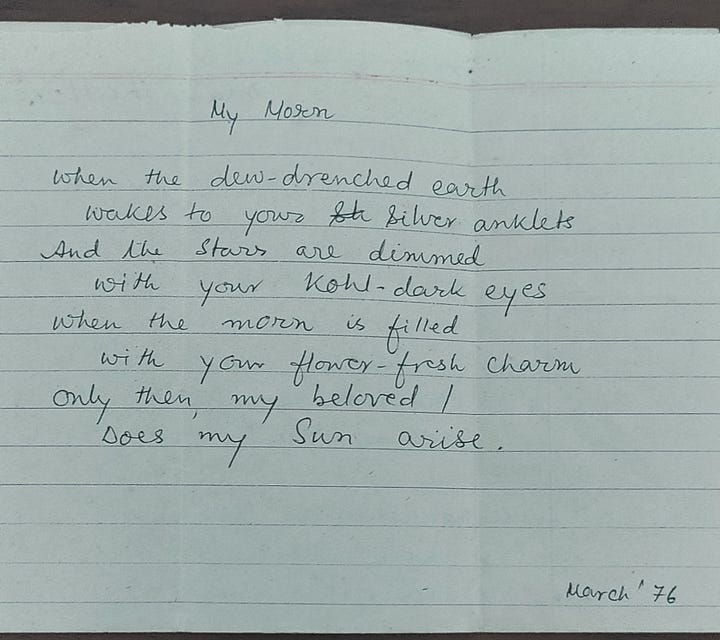 My Morn
when the dew-drenched earth
wakes to your silver anklets
And the stars are dimmed
with your Kohl-dark eyes
when the morn is filled
with your flower-fresh charm
only then, my beloved /
Does my Sun arise.
March '76